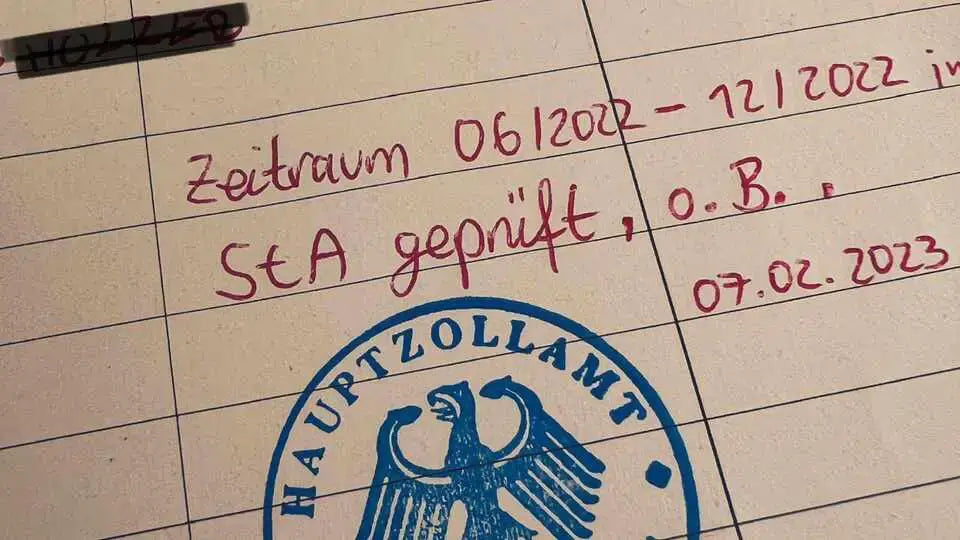 Zeitraum 06/2022 - 12/2022 in
StA geprüft, o. B..
07.02.2023
HAUPTZOLLAMT